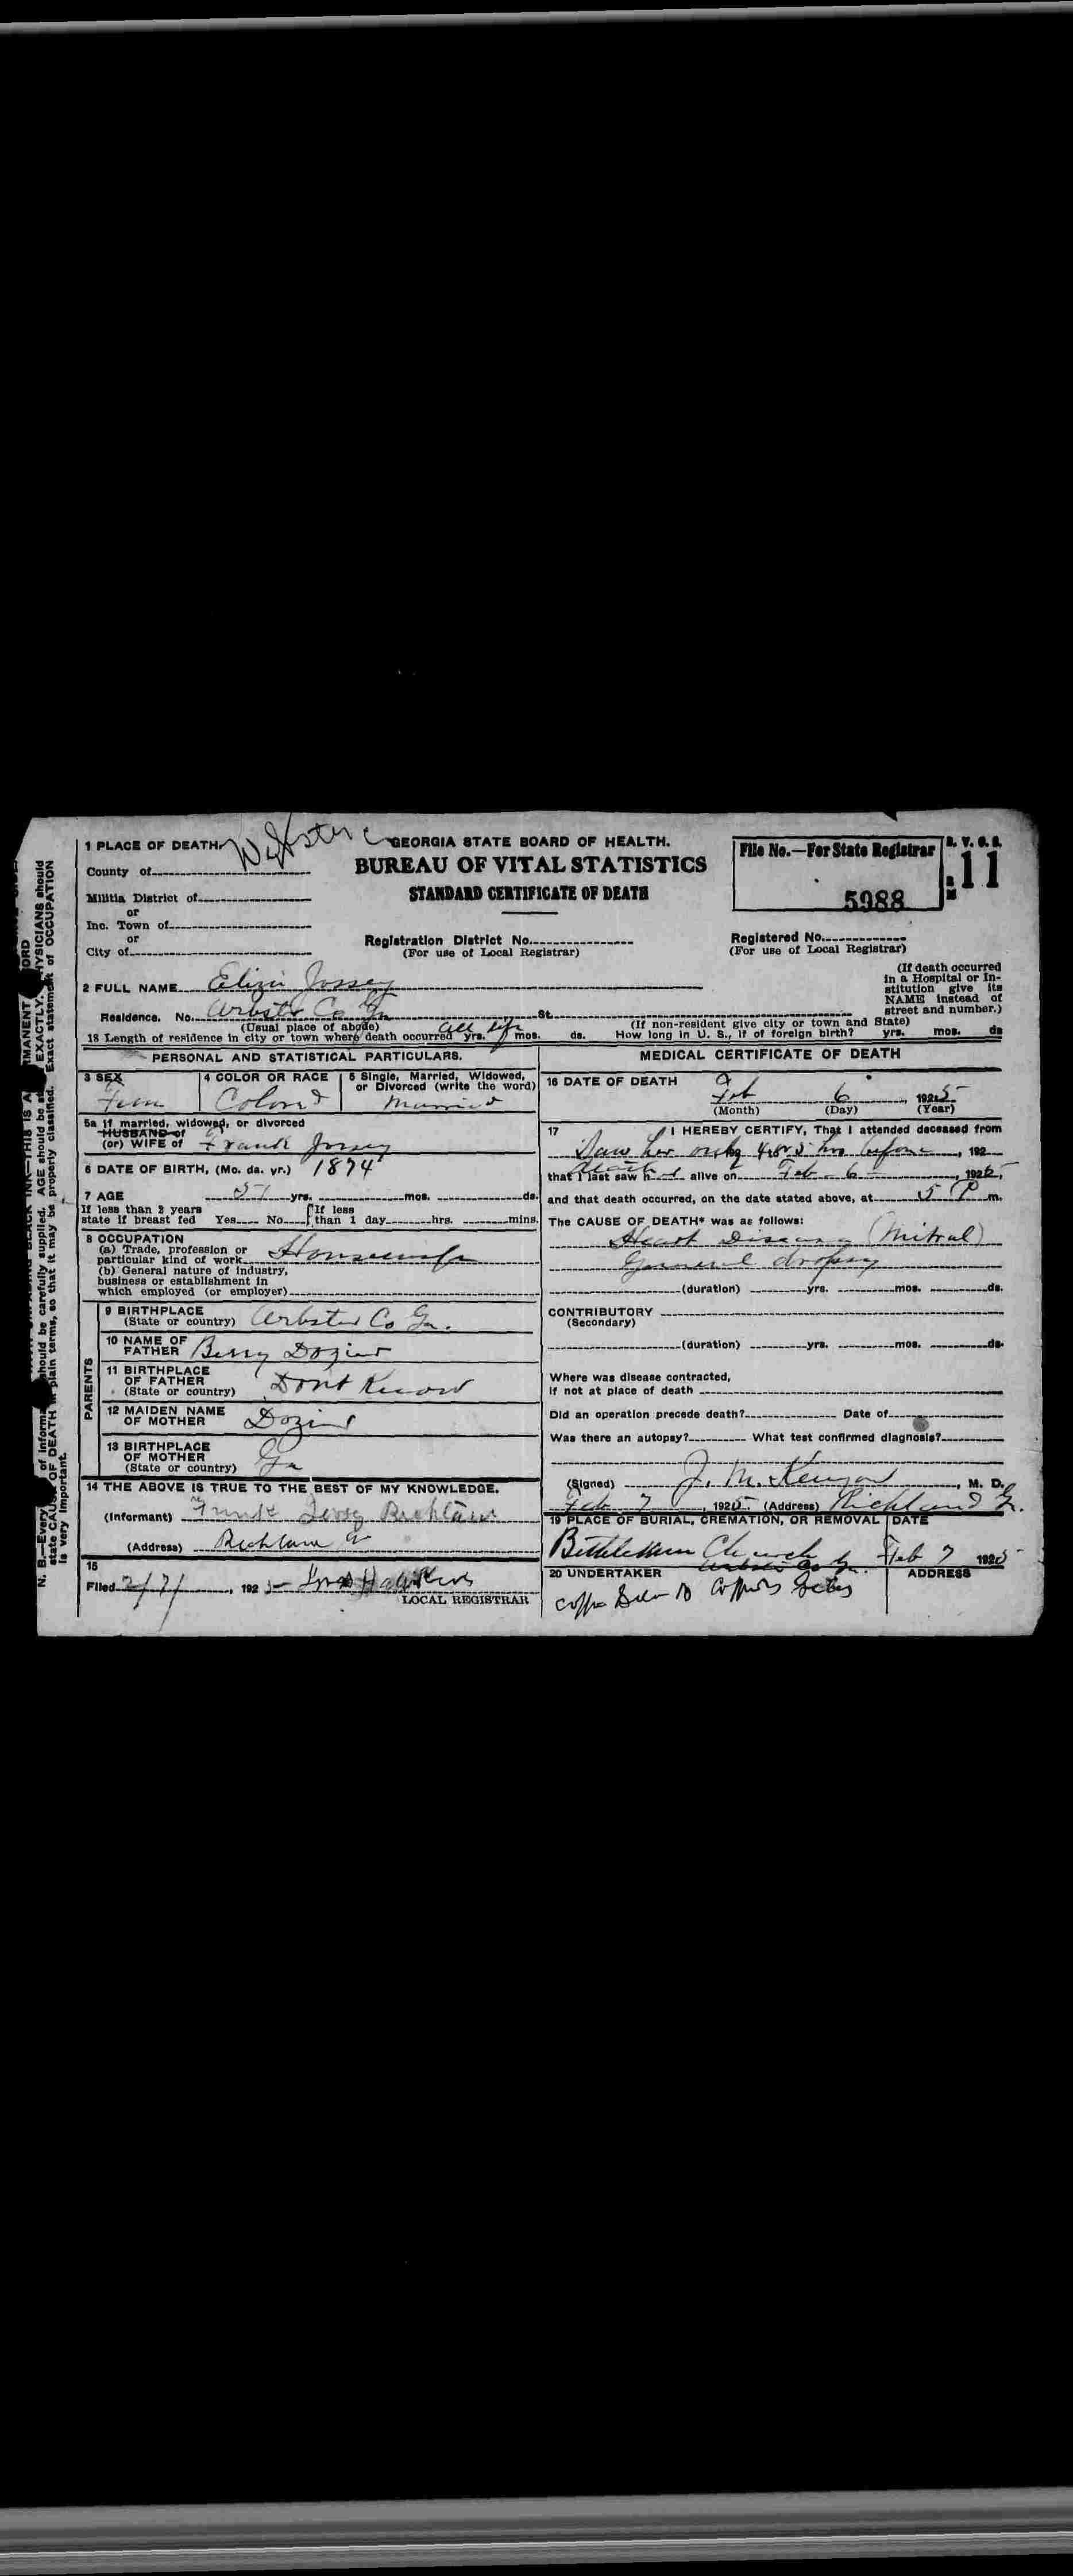 1 PLACE OF DEATH.
Webster
County of
Militia District of
or
Inc. Town of
or
City of
GEORGIA STATE BOARD OF HEALTH.
BUREAU OF VITAL STATISTICS
STANDARD CERTIFICATE OF DEATH
Registration District No.
(For use of Local Registrar)
File No.—For State Registrar
5988
B. V. S. S.
11
Registered No.
(For use of Local Registrar)
2 FULL NAME Jossey
(If death occurred in a Hospital or Institution give its NAME instead of street and number.)
Residence. No. Webster Co Ga St.
(Usual place of abode) (If non-resident give city or town and State)
18 Length of residence in city or town where death occurred all life yrs. mos. ds. How long in U. S., if of foreign birth? yrs. mos. ds
PERSONAL AND STATISTICAL PARTICULARS.
3 SEX
Fem
4 COLOR OR RACE
Colored
5 Single, Married, Widowed, or Divorced (write the word)
Married
5a If married, widowed, or divorced
HUSBAND of
(or) WIFE of Frank Jossey
6 DATE OF BIRTH, (Mo. da. yr.) 1874
7 AGE 51 yrs. mos. ds.
If less than 2 years
state if breast fed Yes No
If less
than 1 day hrs. mins.
8 OCCUPATION
(a) Trade, profession or
particular kind of work Housewife
(b) General nature of industry,
business or establishment in
which employed (or employer)
9 BIRTHPLACE
(State or country) Webster Co Ga.
PARENTS
10 NAME OF
FATHER Berry Dozier
11 BIRTHPLACE
OF FATHER
(State or country) Dont Know
12 MAIDEN NAME
OF MOTHER Dozier
13 BIRTHPLACE
OF MOTHER
(State or country) Ga
14 THE ABOVE IS TRUE TO THE BEST OF MY KNOWLEDGE.
(Informant) Frank
(Address) Richland Ga
15
Filed 2/7/, 1925 Hawkins
LOCAL REGISTRAR
MEDICAL CERTIFICATE OF DEATH
16 DATE OF DEATH
Feb 6, 1925
(Month) (Day) (Year)
17 I HEREBY CERTIFY, That I attended deceased from
Saw her only 4 or 5 hrs before, 192
death
that I last saw h alive on Feb 6, 1925,
and that death occurred, on the date stated above, at 5 P m.
The CAUSE OF DEATH* was as follows:
Heart Disease (Mitral)
General dropsy
(duration) yrs. mos. ds.
CONTRIBUTORY
(Secondary)
(duration) yrs. mos. ds.
Where was disease contracted,
if not at place of death
Did an operation precede death? Date of
Was there an autopsy? What test confirmed diagnosis?
(Signed) J. M. Kenyon, M. D.
Feb 7, 1925 (Address) Richland Ga.
19 PLACE OF BURIAL, CREMATION, OR REMOVAL
Bethlehem Church
Webster Co Ga.
DATE
Feb 7 1925
20 UNDERTAKER
ADDRESS